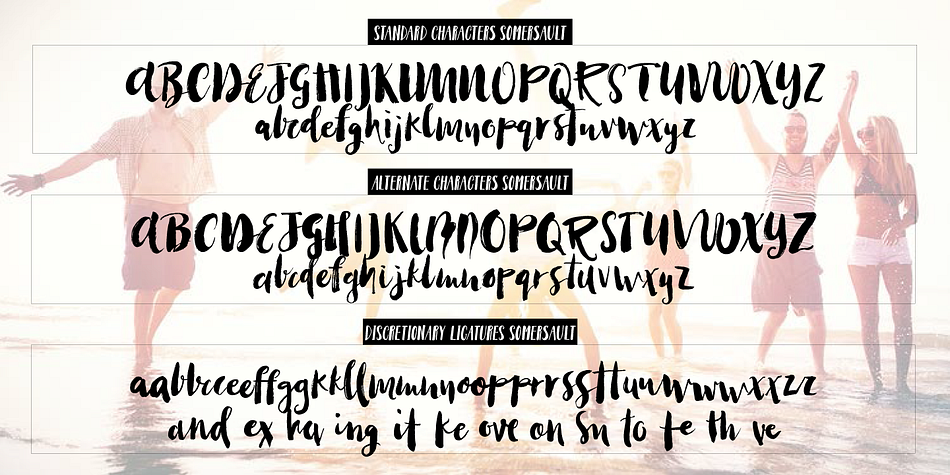 STANDARD CHARACTERS SOMERSAULT
ABCDEFGHIJKLMNOPQRSTUVWXYZ
abcdefghijklmnopqrstuvwxyz
ALTERNATE CHARACTERS SOMERSAULT
ABCDEFGHIJKLMNOPQRSTUVWXYZ
abcdefghijklmnopqrstuvwxyz
DISCRETIONARY LIGATURES SOMERSAULT
aabbcceeffggkkllmmnnoopprrssttuuwwwxxzz
and ex ha ing it ke ove on Sn to te th ve